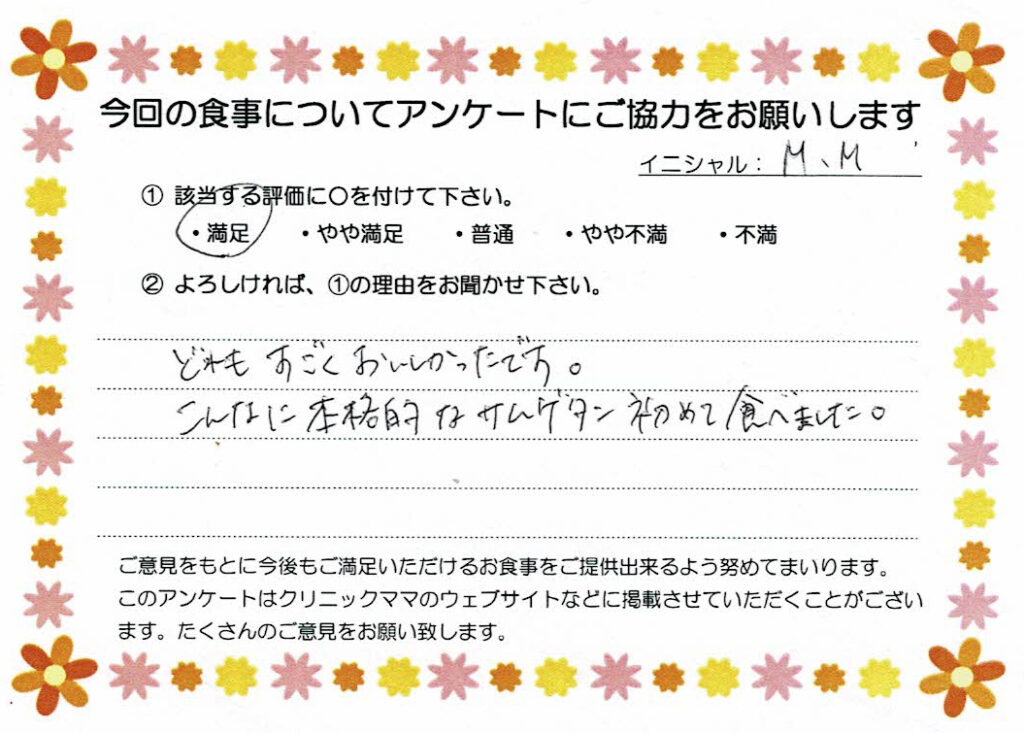 今回の食事についてアンケートにご協力をお願いします
イニシャル： M、M
① 該当する評価に〇を付けて下さい。
・満足 ・やや満足 ・普通 ・やや不満 ・不満
② よろしければ、①の理由をお聞かせ下さい。
どれもすごくおいしかったです。
こんなに本格的なサムゲタン初めて食べました。
ご意見をもとに今後もご満足いただけるお食事をご提供出来るよう努めてまいります。
このアンケートはクリニックママのウェブサイトなどに掲載させていただくことがござい
ます。たくさんのご意見をお願い致します。